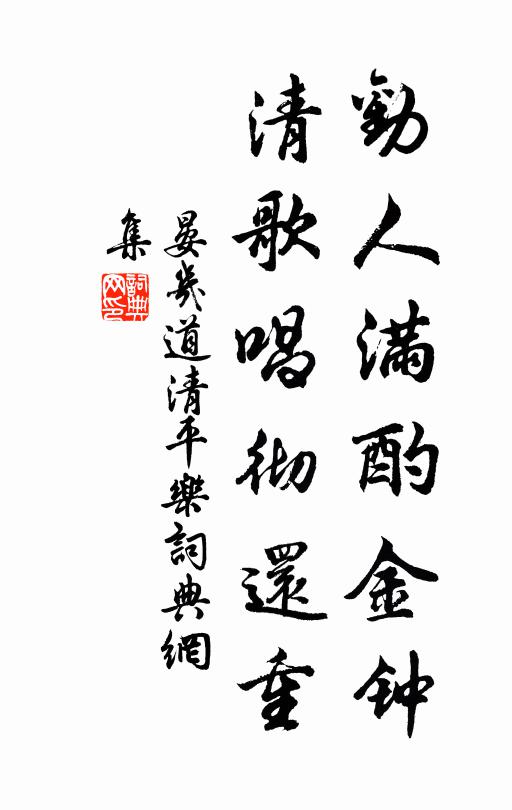 勸人滿酌金钟
清歌唱彻還重
晏幾道清平樂詞典網
集
詞典网印